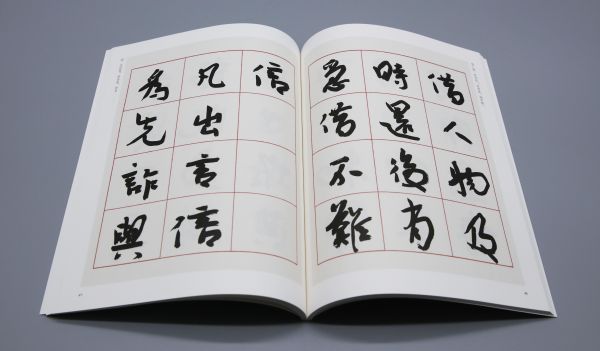 借人物及
時還後有
急借不難
信
凡出言信
為先詐與